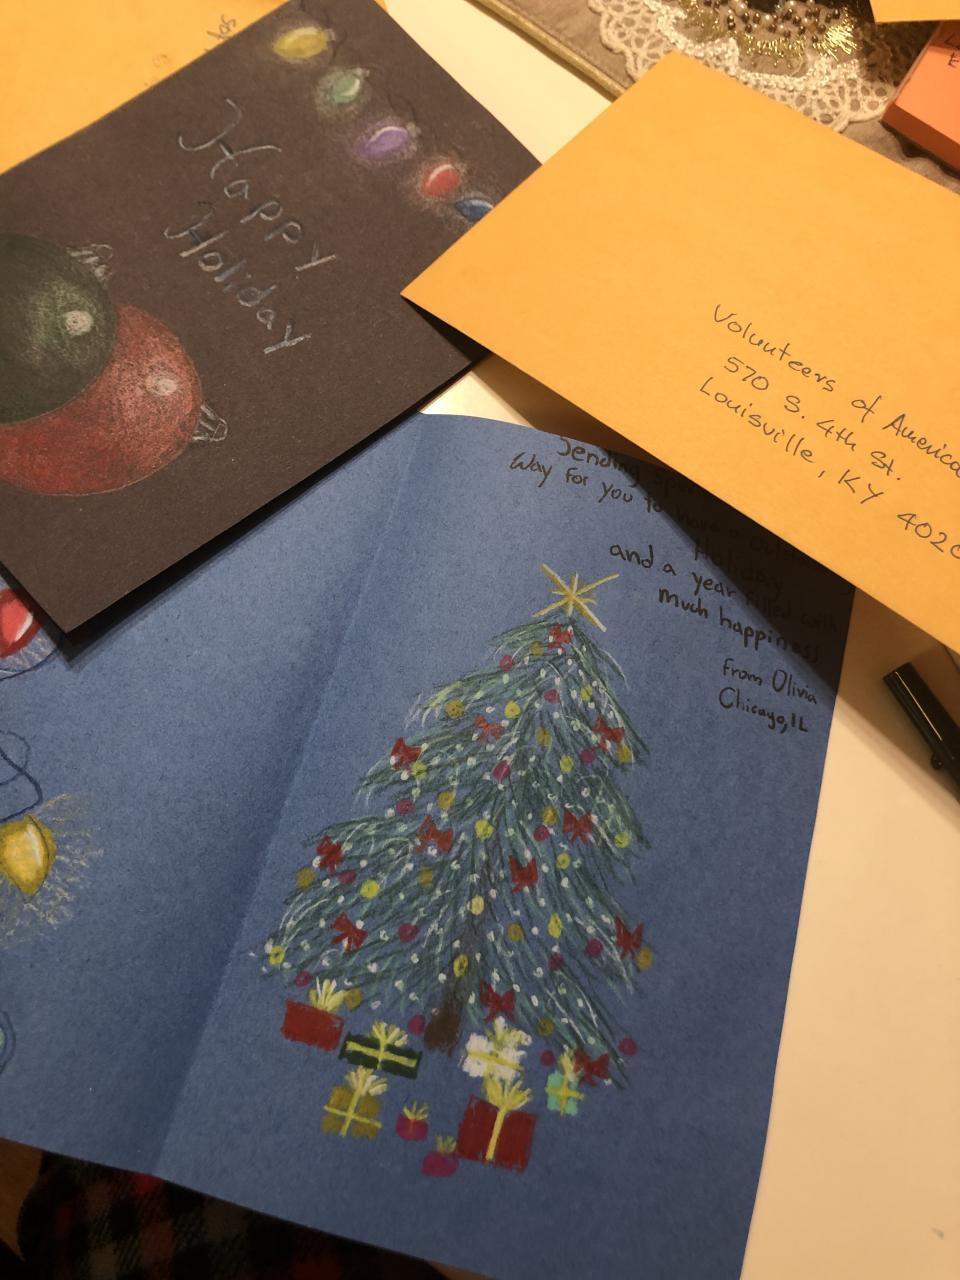 Happy
Holiday
Volunteers of America
570 S. 4th St.
Louisville, KY 402
Sending
Way for you to have a
Holiday
and a year filled with
much happiness
from Olivia
Chicago, IL